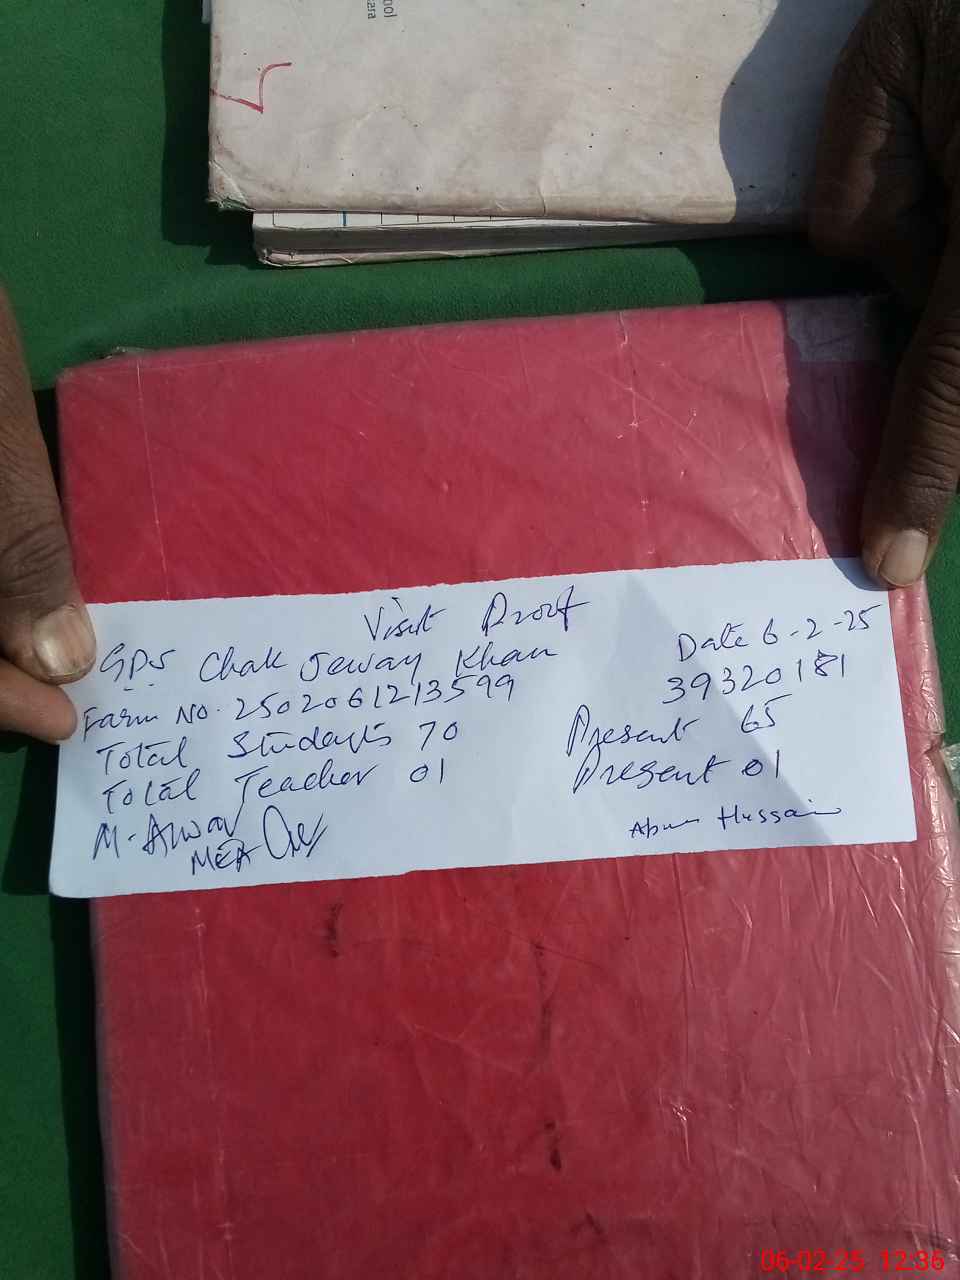 ool
ara
Visit Proof
GPS Chak Jeway Khan
Date 6-2-25
Farm No. 2502061213599
39320181
Total Students 70
Present 65
Total Teacher 01
Present 01
M. Anwar
MEA
Hussain
06-02-25 12:36